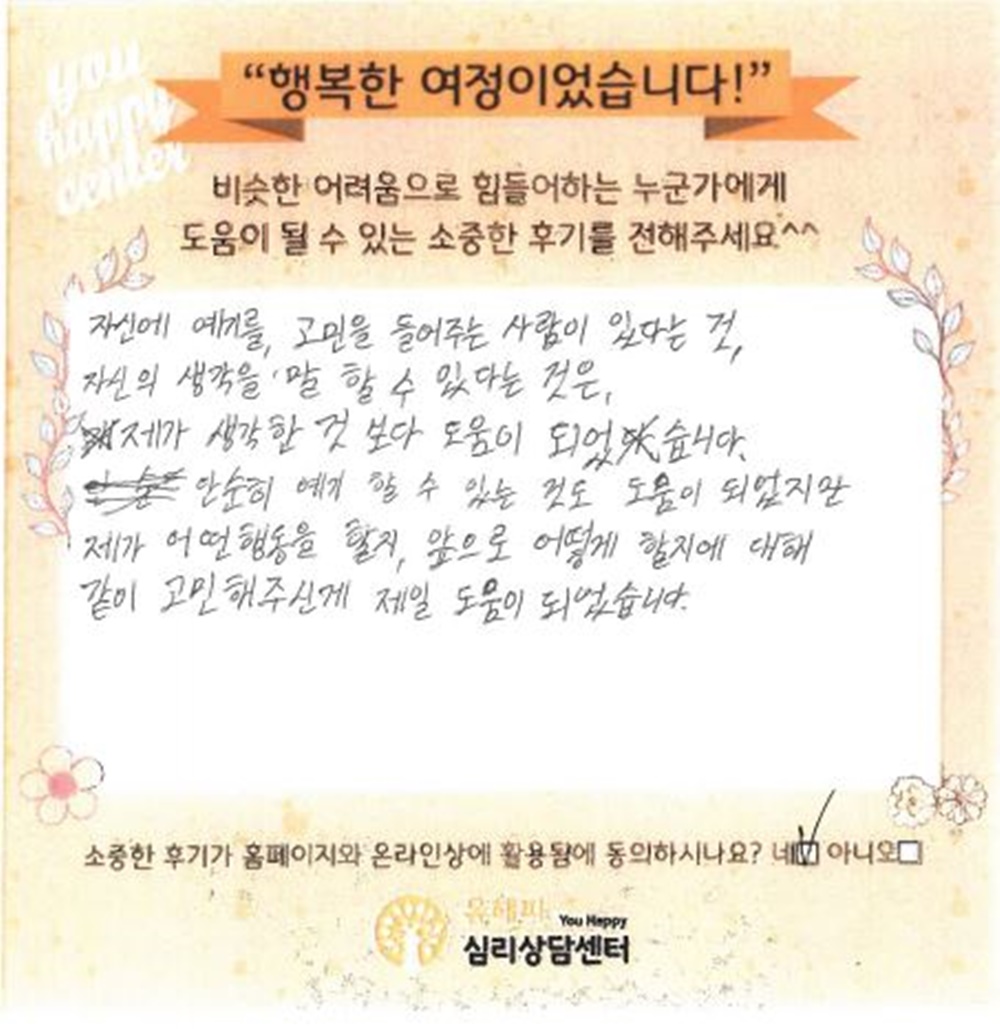 you
happy
center
“행복한 여정이었습니다!”
비슷한 어려움으로 힘들어하는 누군가에게
도움이 될 수 있는 소중한 후기를 전해주세요^^
자신에 예기를, 고민을 들어주는 사람이 있다는 것,
자신의 생각을 말 할 수 있다는 것은,
제가 생각한 것 보다 도움이 되었습니다.
단순히 예기 할 수 있는 것도 도움이 되었지만
제가 어떤 행동을 할지, 앞으로 어떻게 할지에 대해
같이 고민해주신게 제일 도움이 되었습니다.
소중한 후기가 홈페이지와 온라인상에 활용됨에 동의하시나요? 네☑ 아니오☐
유해피
You Happy
심리상담센터